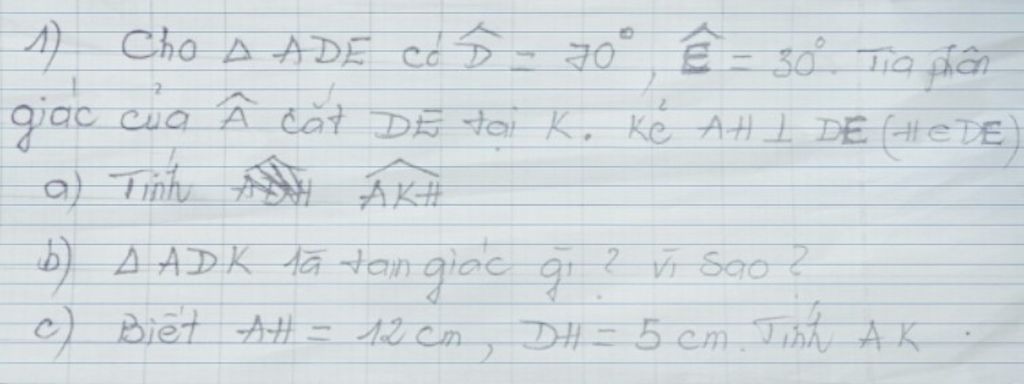 1) Cho Δ ADE có D̂ = 70°, Ê = 30°. Tia phân
giác của Â cắt DE tại K. Kẻ AH ⊥ DE (H ∈ DE)
a) Tính \widehat{AKH}
b) Δ ADK là tam giác gì? vì sao?
c) Biết AH = 12 cm, DH = 5 cm. Tính AK.